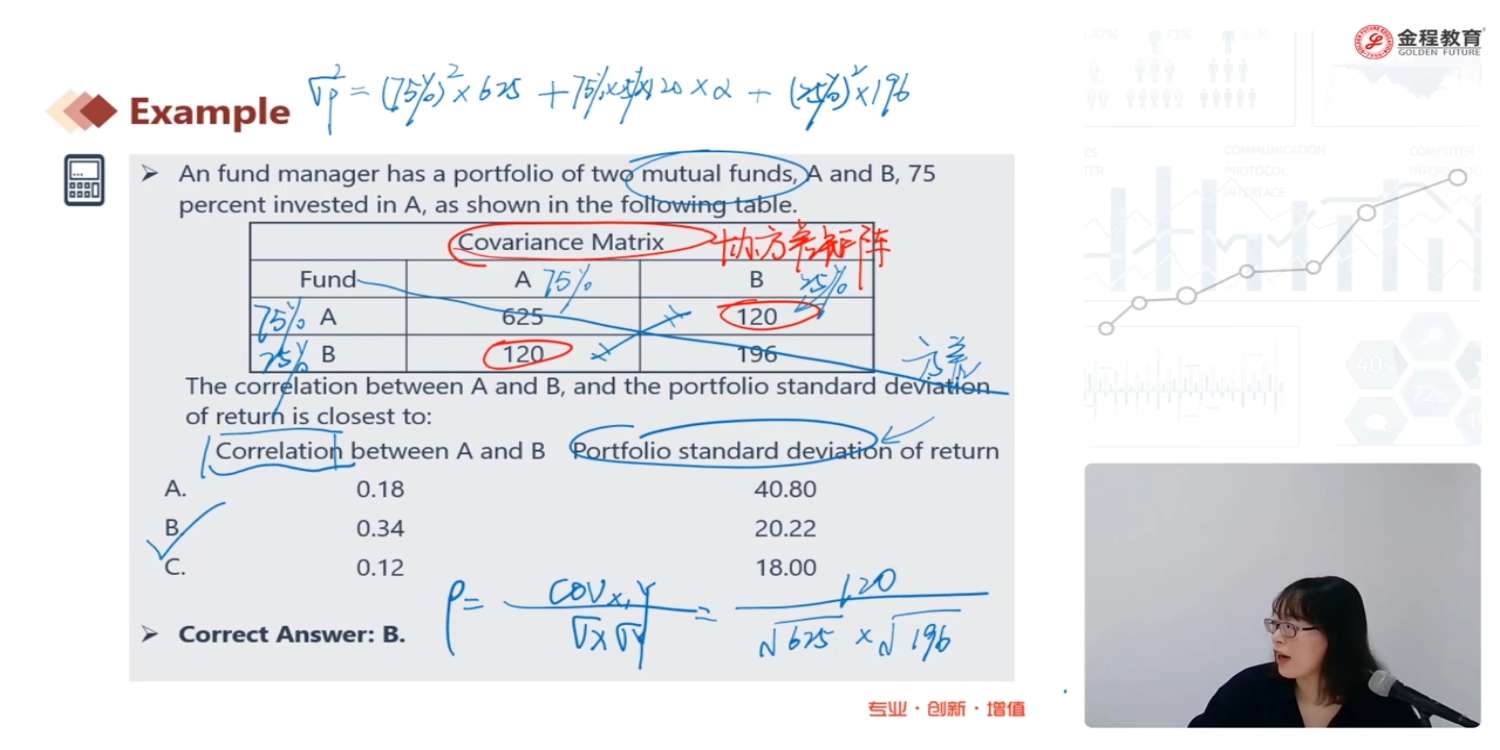 金程教育
GOLDEN FUTURE
σp² = (75%)² × 625 + 75% × 25% × 120 × 2 + (25%)² × 196
Example
➤ An fund manager has a portfolio of two mutual funds, A and B, 75
percent invested in A, as shown in the following table.
Covariance Matrix 协方差矩阵
Fund A 75% B 25%
75% A 625 120
25% B 120 196
方差
The correlation between A and B, and the portfolio standard deviation
of return is closest to:
Correlation between A and B Portfolio standard deviation of return
A. 0.18 40.80
B. 0.34 20.22
C. 0.12 18.00
ρ = COV x,y / σx σy = 120 / √625 × √196
➤ Correct Answer: B.
专业·创新·增值
COMMUNICATION
PROTOCOL